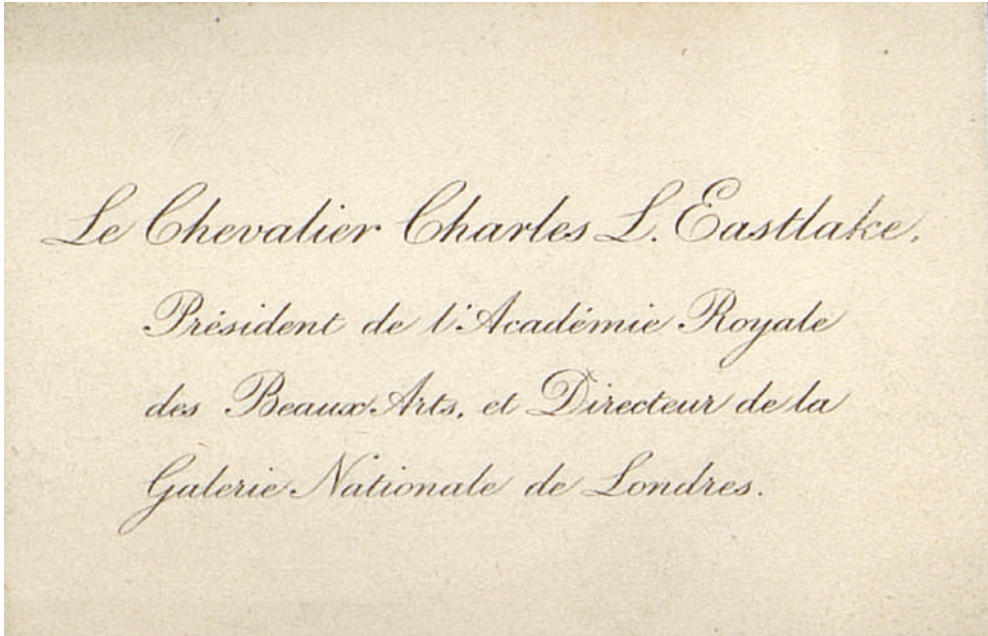 Le Chevalier Charles L. Eastlake.
Président de l'Académie Royale
des Beaux Arts, et Directeur de la
Galerie Nationale de Londres.